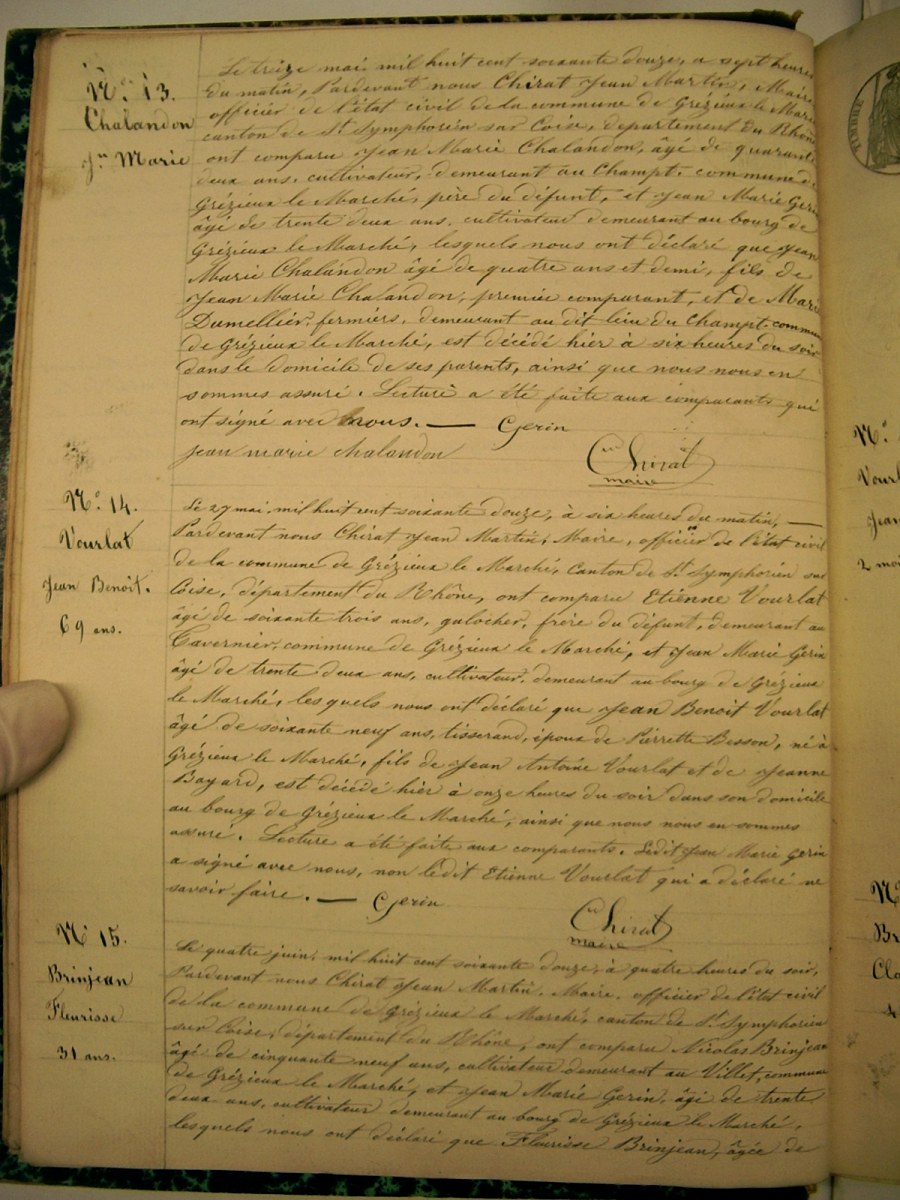 N° 13.
Chalandon
Jn Marie
Le treize mai mil huit cent soixante douze, a sept heures
du matin, Pardevant nous Chirat Jean Martin, Maire
officier de l'état civil de la commune de Grézieux le Marché
canton de St Symphorien sur Coise, département du Rhône
ont comparu Jean Marie Chalandon, âgé de quarante
deux ans, cultivateur, demeurant au Champt, commune de
Grézieux le Marché, père du défunt, et Jean Marie Gerin
âgé de trente deux ans, cultivateur demeurant au bourg de
Grézieux le Marché, lesquels nous ont déclaré que Jean
Marie Chalandon âgé de quatre ans et demi, fils de
Jean Marie Chalandon, premier comparant, et de Marie
Dumellier, fermiers, demeurant au dit lieu du Champt, commune
de Grézieux le Marché, est décédé hier à six heures du soir
dans le domicile de ses parents, ainsi que nous nous en
sommes assuré. Lecture a été faite aux comparants qui
ont signé avec nous. — Gerin
jean marie chalandon
Chirat
maire
N° 14.
Vourlat
Jean Benoit.
69 ans.
Le 27 mai, mil huit cent soixante douze, à six heures du matin, —
Pardevant nous Chirat Jean Martin, Maire, officier de l'état civil
de la commune de Grézieux le Marché, canton de St Symphorien sur
Coise, département du Rhône, ont comparu Etienne Vourlat
âgé de soixante trois ans, galocher, frère du défunt, demeurant au
Tavernier, commune de Grézieux le Marché, et Jean Marie Gerin
âgé de trente deux ans, cultivateur, demeurant au bourg de Grézieux
le Marché, lesquels nous ont déclaré que Jean Benoit Vourlat
âgé de soixante neuf ans, tisserand, époux de Pierrette Besson, né à
Grézieux le Marché, fils de Jean Antoine Vourlat et de Jeanne
Bayard, est décédé hier à onze heures du soir dans son domicile
au bourg de Grézieux le Marché, ainsi que nous nous en sommes
assuré. Lecture a été faite aux comparants. Ledit Jean Marie Gerin
a signé avec nous, non ledit Etienne Vourlat qui a déclaré ne
savoir faire. — Gerin
Chirat
maire
N° 15.
Brinjean
Fleurisse
31 ans.
Le quatre juin, mil huit cent soixante douze, à quatre heures du soir,
Pardevant nous Chirat Jean Martin, Maire, officier de l'état civil
de la commune de Grézieux le Marché, canton de St Symphorien
sur Coise, département du Rhône, ont comparu Nicolas Brinjean
âgé de cinquante neuf ans, cultivateur demeurant au Villet, commune
de Grézieux le Marché, et Jean Marie Gerin, âgé de trente
deux ans, cultivateur demeurant au bourg de Grézieux le Marché,
lesquels nous ont déclaré que Fleurisse Brinjean, âgée de
TIMBRE
N°
Vourl
Jean
2 moi
N°
Br
Cla